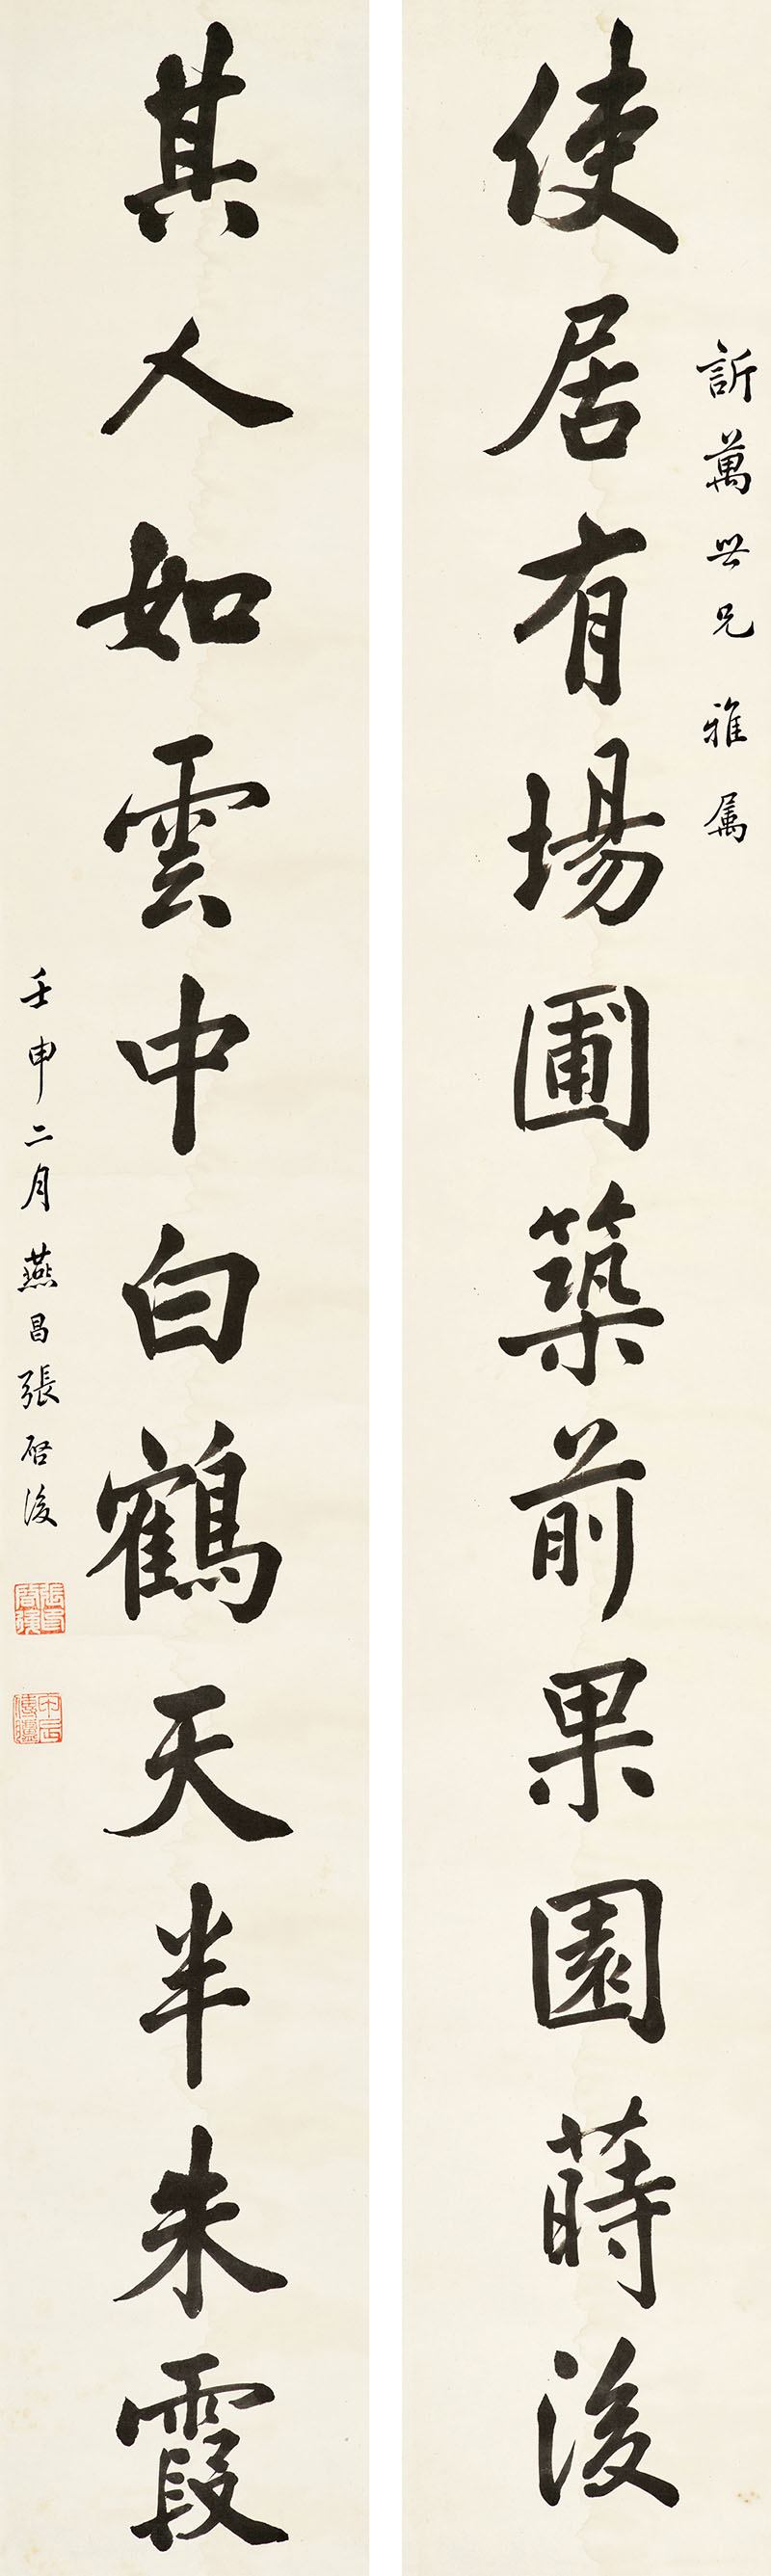 訢萬世兄雅属
使居有場圃築前果園蒔後
其人如雲中白鶴天半朱霞
壬申二月燕昌張啓後
張啓後
甲辰傳臚